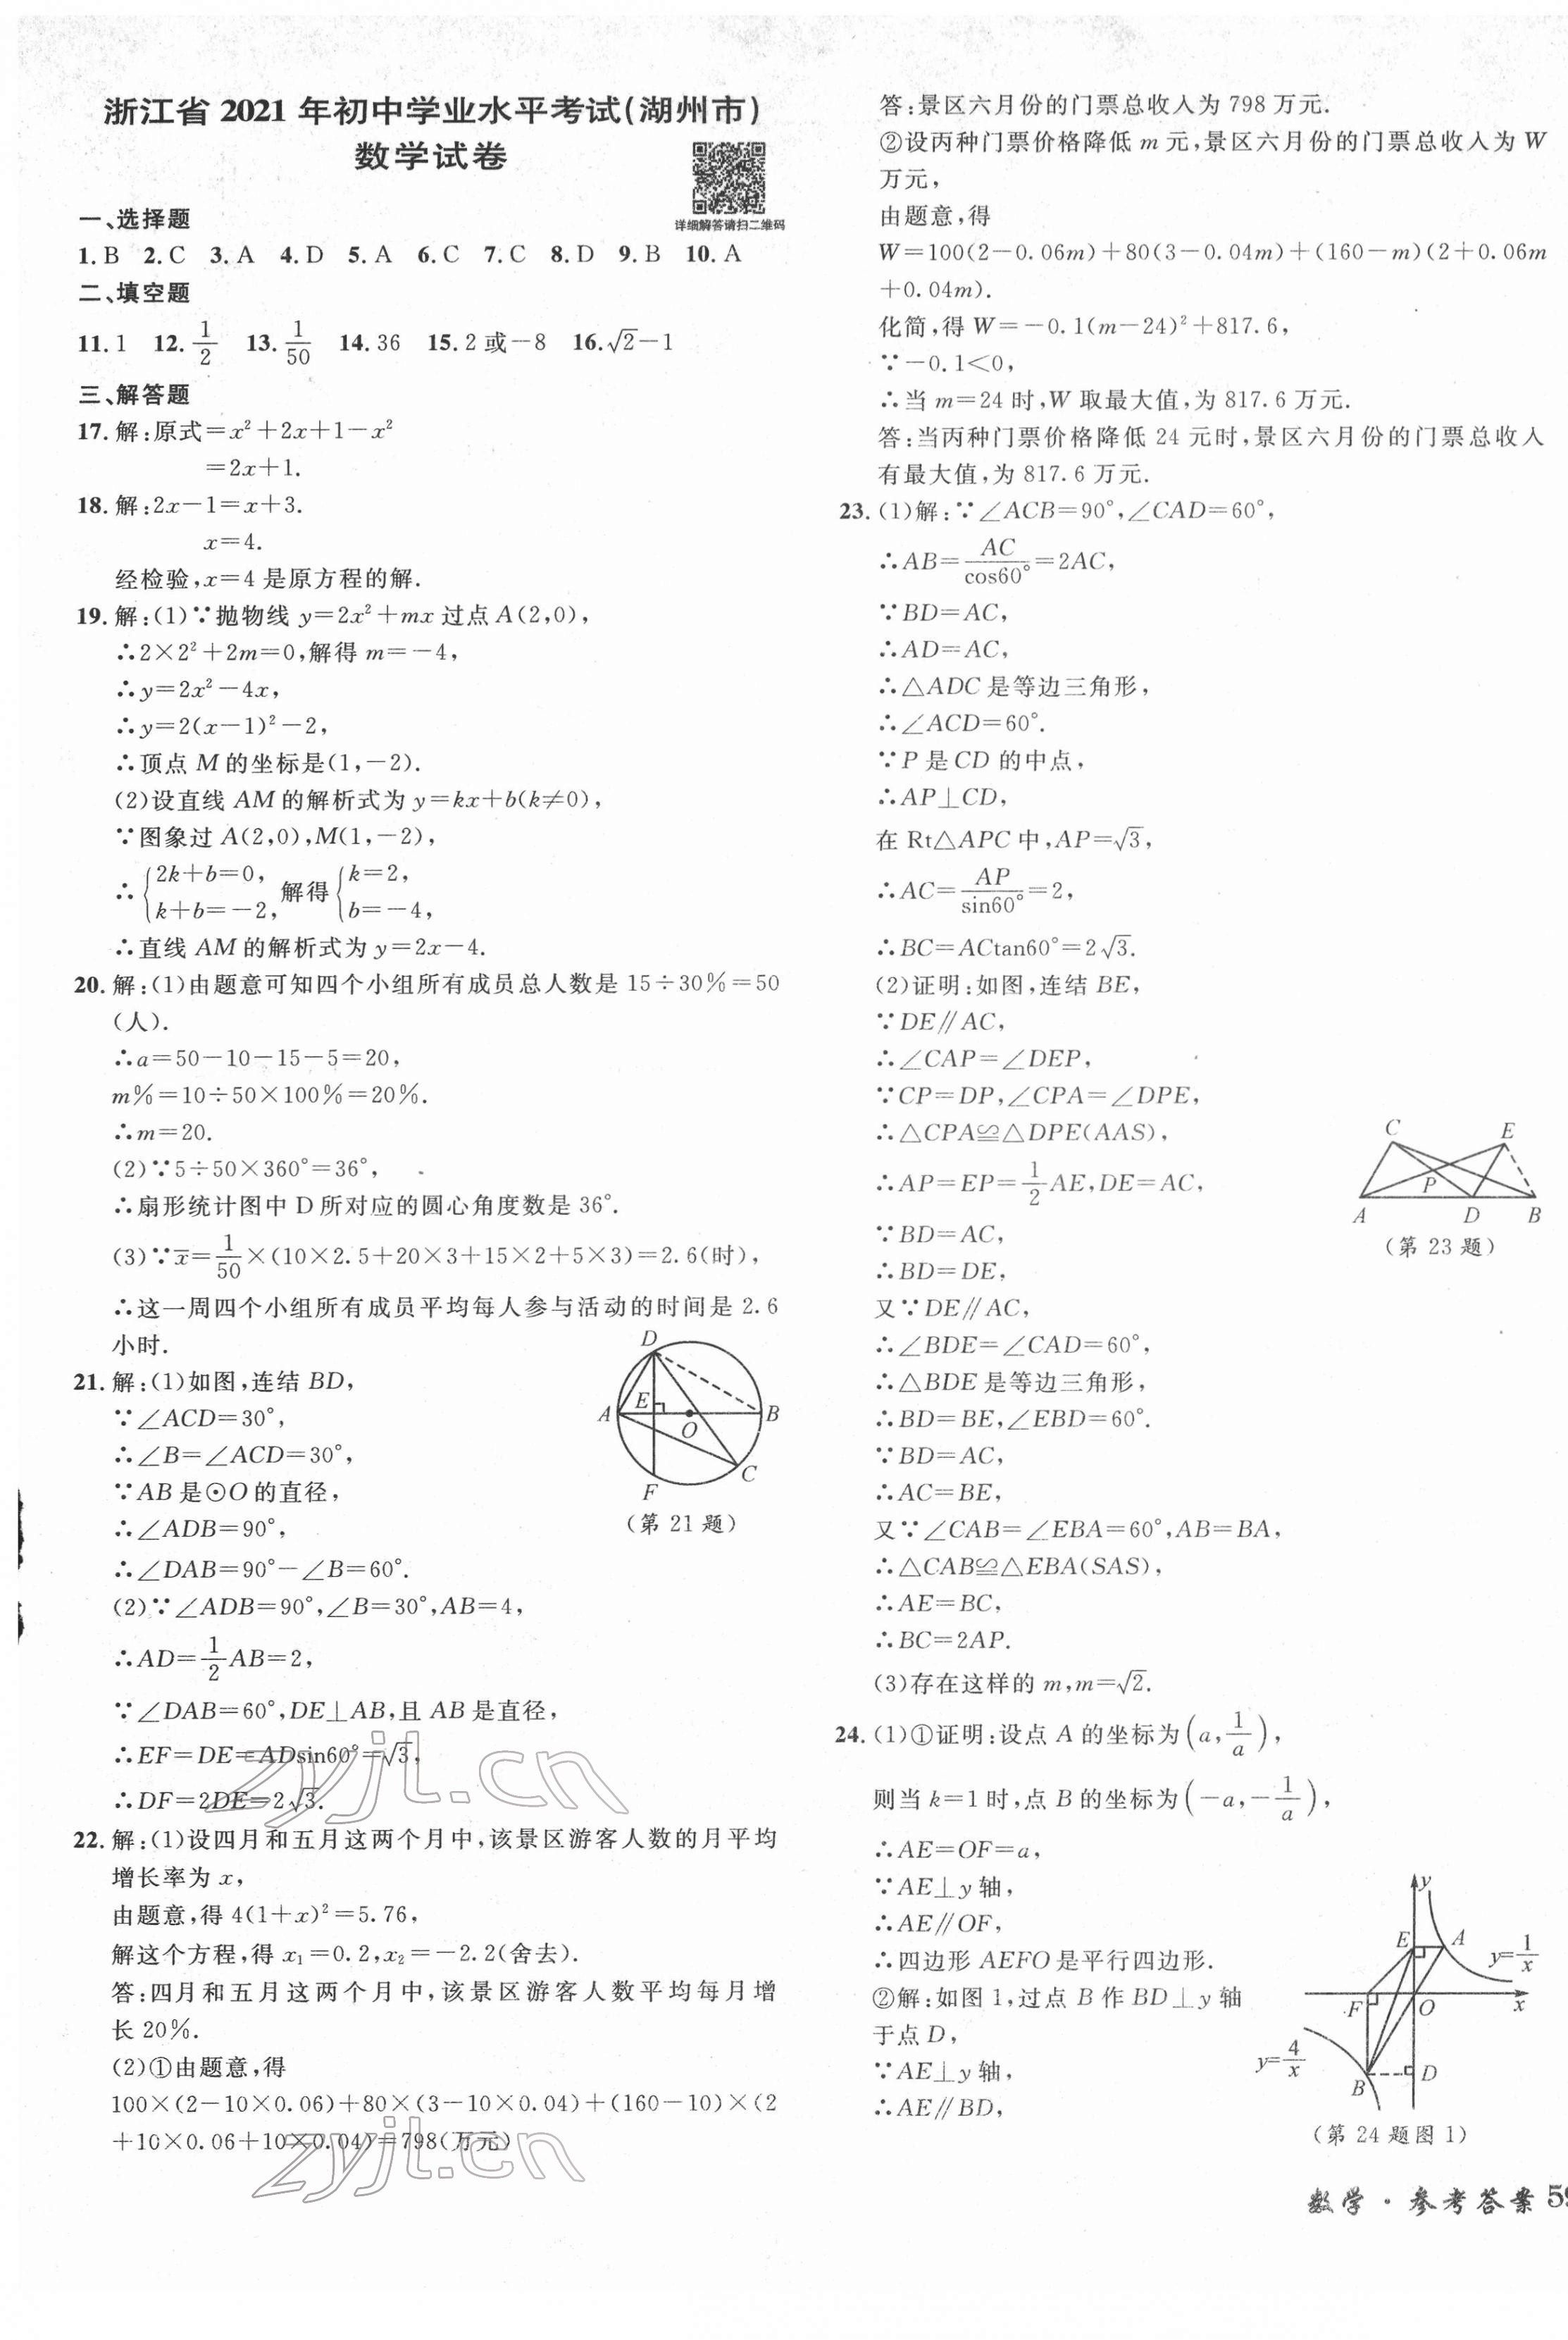 浙江省 2021 年初中学业水平考试(湖州市)
数学试卷
详细解答请扫二维码
一、选择题
1. B 2. C 3. A 4. D 5. A 6. C 7. C 8. D 9. B 10. A
二、填空题
11. 1 12. 1/2 13. 1/50 14. 36 15. 2 或－8 16. √2－1
三、解答题
17. 解:原式＝x²＋2x＋1－x²
＝2x＋1.
18. 解:2x－1＝x＋3.
x＝4.
经检验,x＝4 是原方程的解.
19. 解:(1)∵抛物线 y＝2x²＋mx 过点 A(2,0),
∴2×2²＋2m＝0,解得 m＝－4,
∴y＝2x²－4x,
∴y＝2(x－1)²－2,
∴顶点 M 的坐标是(1,－2).
(2)设直线 AM 的解析式为 y＝kx＋b(k≠0),
∵图象过 A(2,0),M(1,－2),
∴{2k＋b＝0, k＋b＝－2, 解得{k＝2, b＝－4,
∴直线 AM 的解析式为 y＝2x－4.
20. 解:(1)由题意可知四个小组所有成员总人数是 15÷30%＝50
(人).
∴a＝50－10－15－5＝20,
m%＝10÷50×100%＝20%.
∴m＝20.
(2)∵5÷50×360°＝36°,
∴扇形统计图中 D 所对应的圆心角度数是 36°.
(3)∵x̄＝1/50×(10×2.5＋20×3＋15×2＋5×3)＝2.6(时),
∴这一周四个小组所有成员平均每人参与活动的时间是 2.6
小时.
21. 解:(1)如图,连结 BD,
∵∠ACD＝30°,
∴∠B＝∠ACD＝30°,
∵AB 是⊙O 的直径,
∴∠ADB＝90°,
∴∠DAB＝90°－∠B＝60°.
D
E
A
B
O
C
F
(第 21 题)
(2)∵∠ADB＝90°,∠B＝30°,AB＝4,
∴AD＝1/2AB＝2,
∵∠DAB＝60°,DE⊥AB,且 AB 是直径,
∴EF＝DE＝ADsin60°＝√3,
∴DF＝2DE＝2√3.
zyjl.cn
22. 解:(1)设四月和五月这两个月中,该景区游客人数的月平均
增长率为 x,
由题意,得 4(1＋x)²＝5.76,
解这个方程,得 x₁＝0.2,x₂＝－2.2(舍去).
答:四月和五月这两个月中,该景区游客人数平均每月增
长 20%.
(2)①由题意,得
100×(2－10×0.06)＋80×(3－10×0.04)＋(160－10)×(2
＋10×0.06＋10×0.04)＝798(万元)
zyjl.cn
答:景区六月份的门票总收入为 798 万元.
②设丙种门票价格降低 m 元,景区六月份的门票总收入为 W
万元,
由题意,得
W＝100(2－0.06m)＋80(3－0.04m)＋(160－m)(2＋0.06m
＋0.04m).
化简,得 W＝－0.1(m－24)²＋817.6,
∵－0.1＜0,
∴当 m＝24 时,W 取最大值,为 817.6 万元.
答:当丙种门票价格降低 24 元时,景区六月份的门票总收入
有最大值,为 817.6 万元.
23. (1)解:∵∠ACB＝90°,∠CAD＝60°,
∴AB＝AC/cos60°＝2AC,
∵BD＝AC,
∴AD＝AC,
∴△ADC 是等边三角形,
∴∠ACD＝60°.
∵P 是 CD 的中点,
∴AP⊥CD,
在 Rt△APC 中,AP＝√3,
∴AC＝AP/sin60°＝2,
∴BC＝ACtan60°＝2√3.
(2)证明:如图,连结 BE,
∵DE∥AC,
∴∠CAP＝∠DEP,
∵CP＝DP,∠CPA＝∠DPE,
∴△CPA≌△DPE(AAS),
∴AP＝EP＝1/2AE,DE＝AC,
∵BD＝AC,
∴BD＝DE,
又∵DE∥AC,
∴∠BDE＝∠CAD＝60°,
∴△BDE 是等边三角形,
∴BD＝BE,∠EBD＝60°.
∵BD＝AC,
∴AC＝BE,
又∵∠CAB＝∠EBA＝60°,AB＝BA,
∴△CAB≌△EBA(SAS),
∴AE＝BC,
∴BC＝2AP.
C
E
P
A
D
B
(第 23 题)
(3)存在这样的 m,m＝√2.
24. (1)①证明:设点 A 的坐标为(a,1/a),
则当 k＝1 时,点 B 的坐标为(－a,－1/a),
∴AE＝OF＝a,
∵AE⊥y 轴,
∴AE∥OF,
∴四边形 AEFO 是平行四边形.
②解:如图 1,过点 B 作 BD⊥y 轴
于点 D,
∵AE⊥y 轴,
∴AE∥BD,
y
E
A
y=1/x
F
O
x
y=4/x
B
D
(第 24 题图 1)
数学·参考答案 59